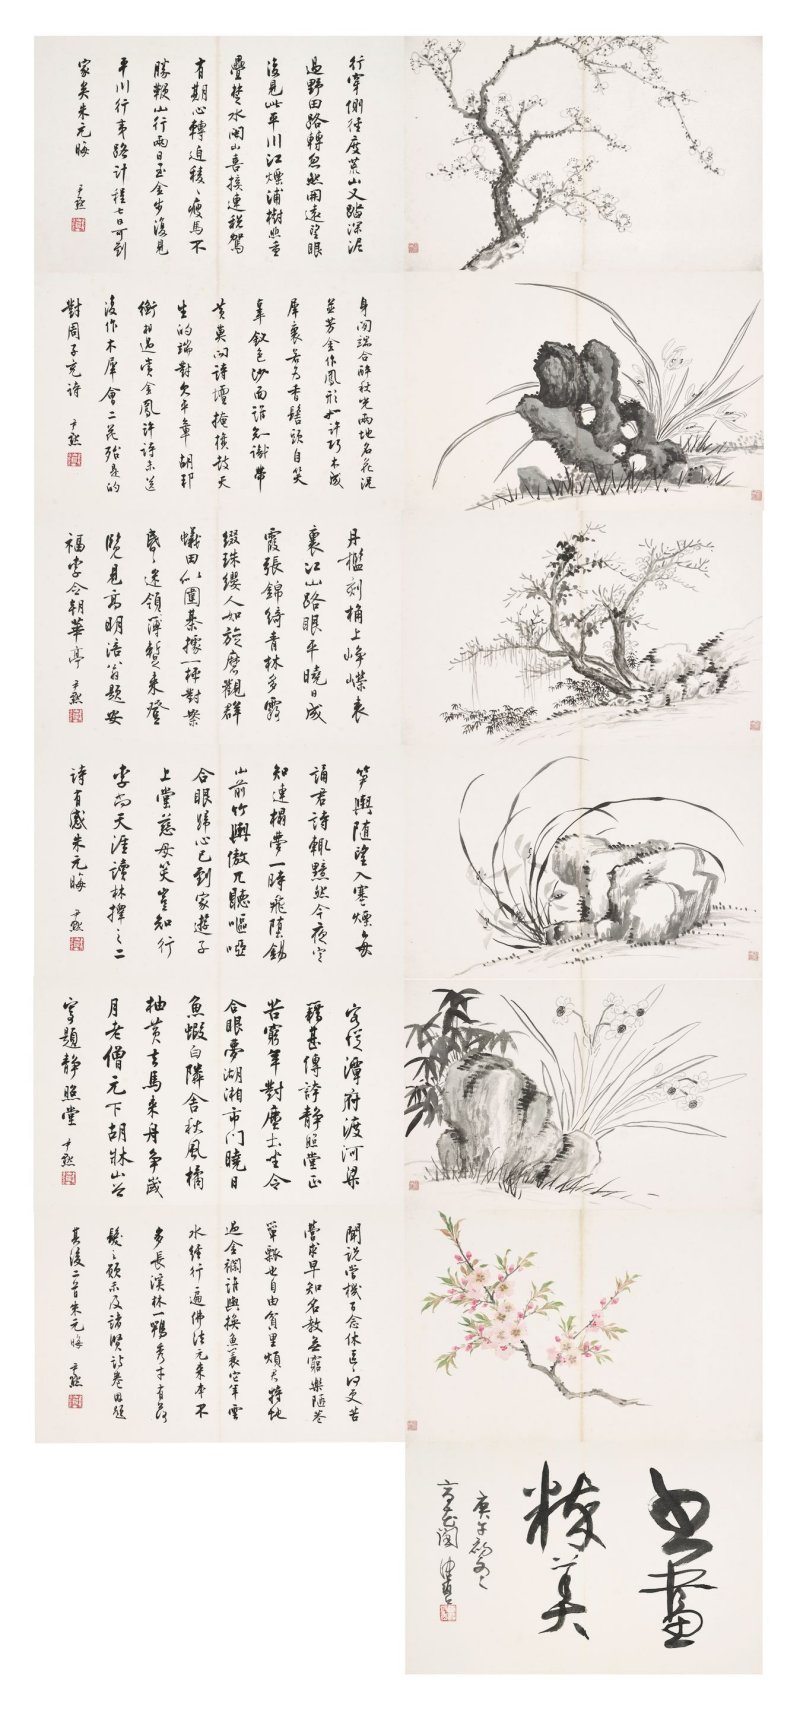 行穿側徑度荒山又踏深泥
過野田路轉忽然開遠望眼
復見此平川江煙浦樹悲重
疊楚水閩山喜接連税駕
有期心轉迫稜々瘦馬不
勝鞭山行兩日至金步復見
平川行夷路計程七日可到
家矣朱元晦 尹默
身閒端合醉秋光兩地名花況
並芳金作鳳形如許巧木成
犀裏若為香髻頭自笑
辜釵色沙面誰知謝帶
黃莫向詩壇天
生的端對欠平章胡邦
衡相過賞金鳳許詩未送
後作木犀會二花殆是的
對周子充詩 尹默
丹檻刻桷上崢嶸表
裏江山路眼平曉日成
霞張錦綺青林多露
綴珠纓人如旋磨觀群
蟻田似圍棊據一枰對案
昏々迷領簿暫來登
覽見高明涪翁題安
福李令朝華亭 尹默
筍輿隨望入寒煙每
誦君詩輒黯然今夜定
知連榻夢一時飛墮錫
山前竹輿傲兀聽嘔啞
合眼歸心已到家遊子
上堂慈母笑豈知行
李尚天涯讀林擇之二
詩有感朱元晦 尹默
客從潭府渡河梁
籍甚傳誇靜照堂正
苦窮年對塵土坐令
合眼夢湖湘市門曉日
魚蝦白隣舍秋風橘
柚黃去馬來舟爭歲
月老僧元不下胡牀山谷
寄題靜照堂 尹默
聞説當機百念休區々何更苦
營求早知名教無窮樂陋巷
簞瓢也自由貧里煩君特地
過金襴誰與換魚蓑它年雲
水經行遍佛法元來本不
多長溪林一鶚秀才有落
髮之願示及諸賢詩卷因題
其後二首朱元晦 尹默
書畫
粹美
庚午初冬
高花閣健碧